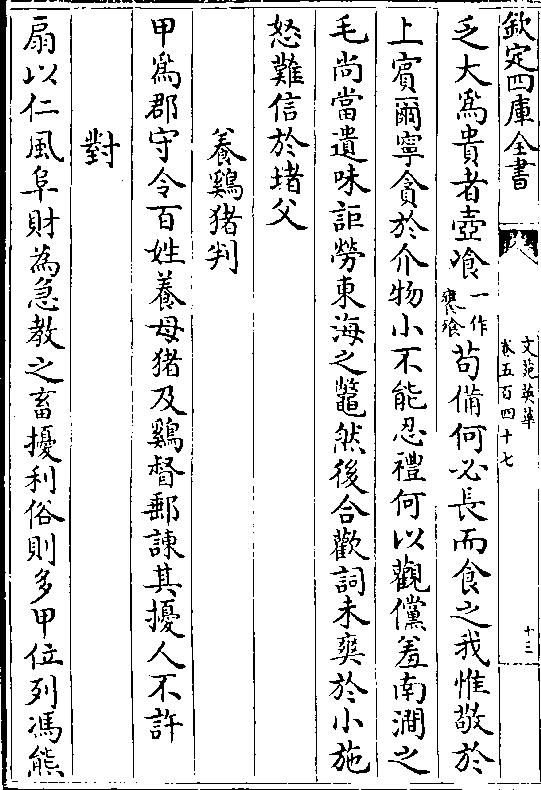 欽定四庫全書
文苑英華
卷五百四十七
十三
乏大為貴者壺飡一作饔飡苟備何必長而食之我惟敬於
上賓爾寧貪於介物小不能忍禮何以觀儻羞南澗之
毛尚當遺味詎勞東海之鼈然後合歡詞未爽於小施
怒難信於堵父
養鷄猪判
甲為郡守令百姓養母猪及鷄督郵諫其擾人不許
對
扇以仁風阜財為急教之畜擾利俗則多甲位列馮熊